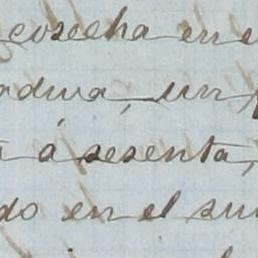 cosecha en e
un
á sesenta,
do en el su